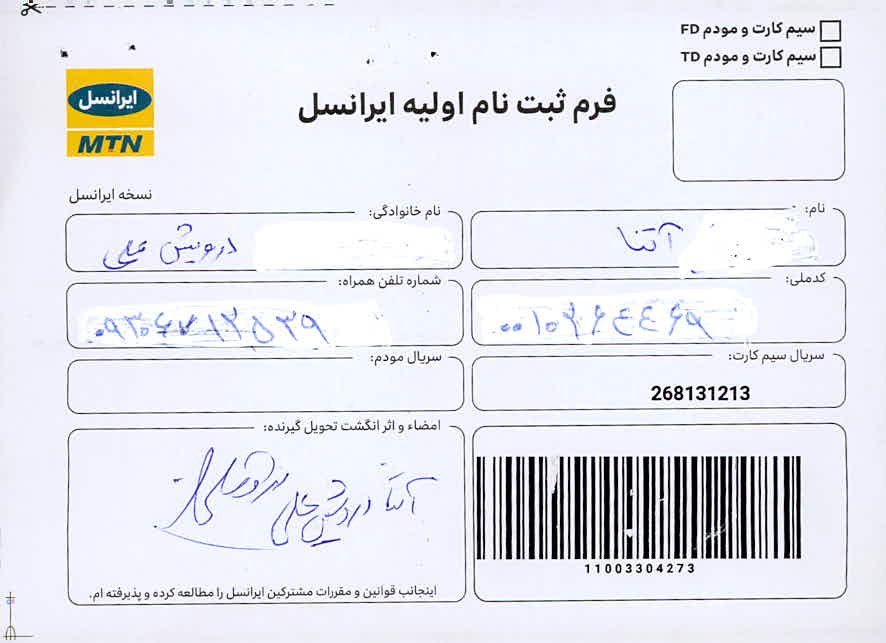 سیم کارت و مودم FD
سیم کارت و مودم TD
ایرانسل
MTN
فرم ثبت نام اولیه ایرانسل
نسخه ایرانسل
نام:
آتنا
نام خانوادگی:
درویش علی
کدملی:
شماره تلفن همراه:
سریال سیم کارت:
268131213
سریال مودم:
امضاء و اثر انگشت تحویل گیرنده:
آتنا درویش علی
11003304273
اینجانب قوانین و مقررات مشترکین ایرانسل را مطالعه کرده و پذیرفته ام.